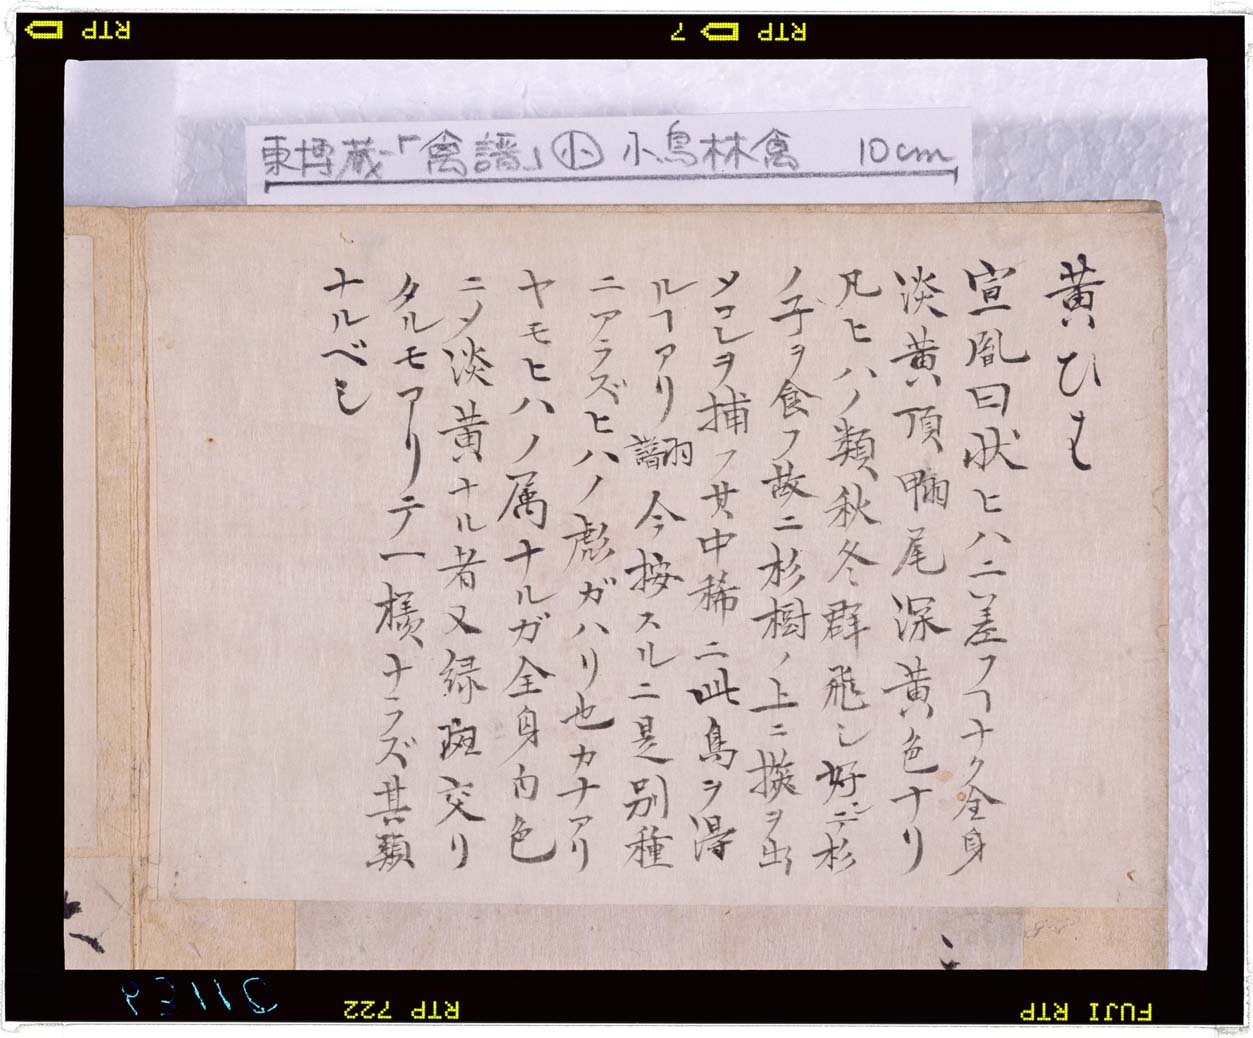 RTP
7 RTP
東博蔵-「禽譜」㊉ 小鳥林禽 10cm
黄ひは
宣胤曰状ヒハニ差フヿナク全身
淡黄頂 尾深黄色ナリ
凡ヒハノ類秋冬群飛シ好ンデ杉
ノ子ヲ食フ故ニ杉樹ノ上ニ ヲ出
メコレヲ捕フ其中稀ニ此鳥ヲ得
ルヿアリ 翻譜 今按スルニ是別種
ニアラズヒハノ彪ガハリ也カナアリ
ヤモヒハノ属ナルガ全身白色
ニメ淡黄ナル者又緑斑交リ
タルモアリテ一様ナラズ其類
ナルベし
RTP 722
FUJI RTP